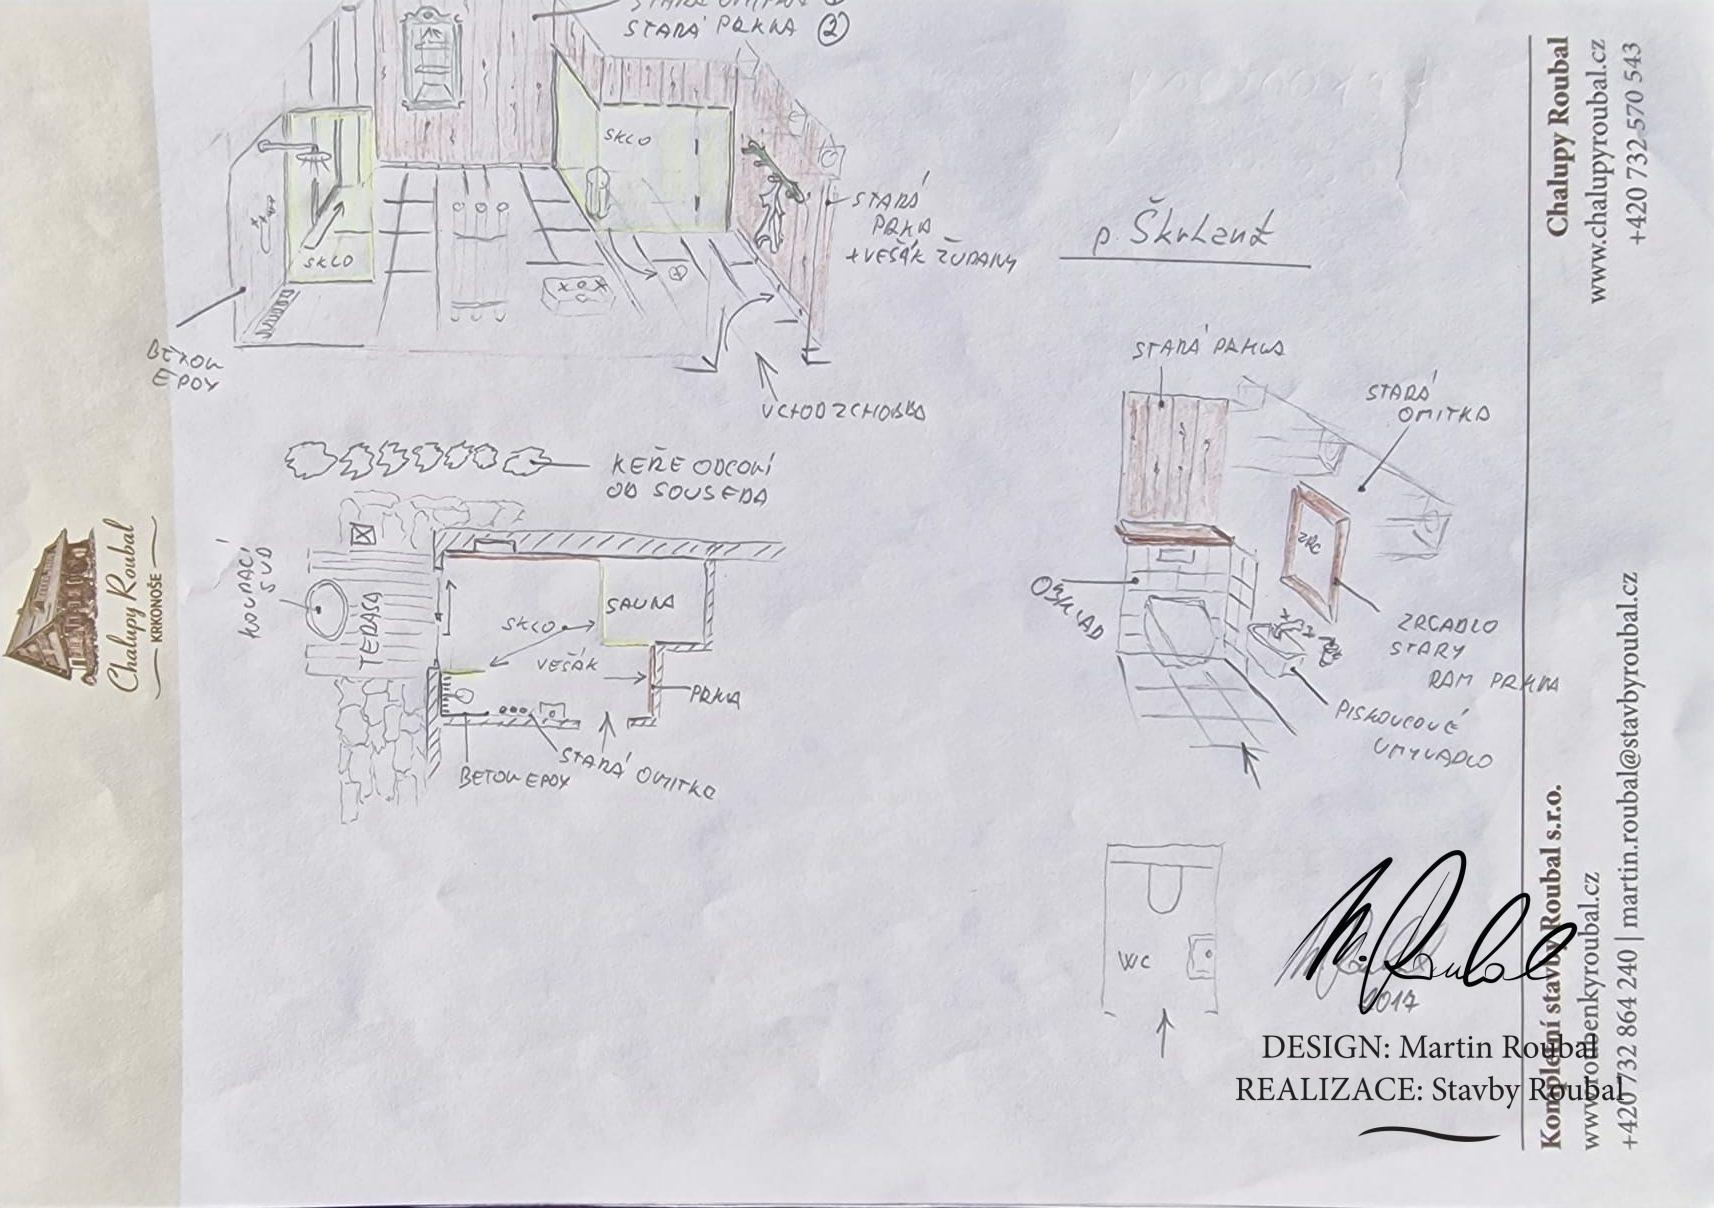 STARÁ OMITKA
STARÁ PRKNA ②
SKLO
SKLO
STARÁ
PRKNA
+VEŠÁK ŽUPANY
BETON
EPOXY
VCHOD Z CHODBY
p. Škrhant
KEŘE ODCONÍ
OD SOUSEDA
KOUPACÍ
SUD
TERASA
SAUNA
SKLO
VEŠÁK
PRKNA
STARÁ OMITKA
BETON EPOXY
STARÁ PRKNA
STARÁ
OMITKA
OBKLAD
ZRC
ZRCADLO
STARY
RAM PRKNA
PISKOVCOVÉ
UMYVADLO
WC
M. Roubal
2017
DESIGN: Martin Roubal
REALIZACE: Stavby Roubal
Chalupy Roubal
KRKONOŠE
Chalupy Roubal
www.chalupyroubal.cz
+420 732 570 543
Kompletní stavby Roubal s.r.o.
www.roubenkyroubal.cz
+420 732 864 240 | martin.roubal@stavbyroubal.cz